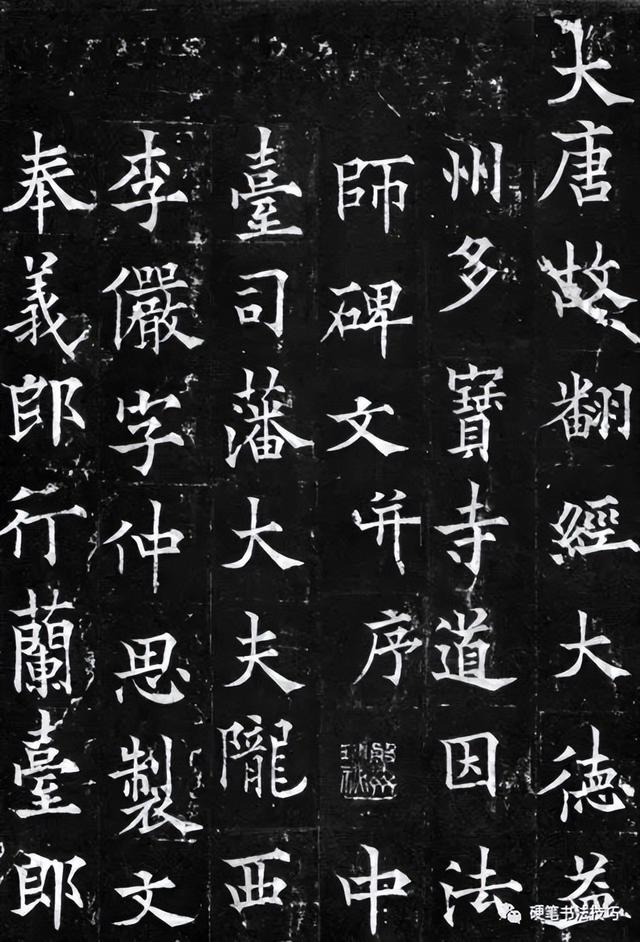 大唐故翻經大德益
州多寶寺道因法
師碑文并序 中
臺司藩大夫隴西
李儼字仲思製文
奉義郎行蘭臺郎
硬笔书法技巧